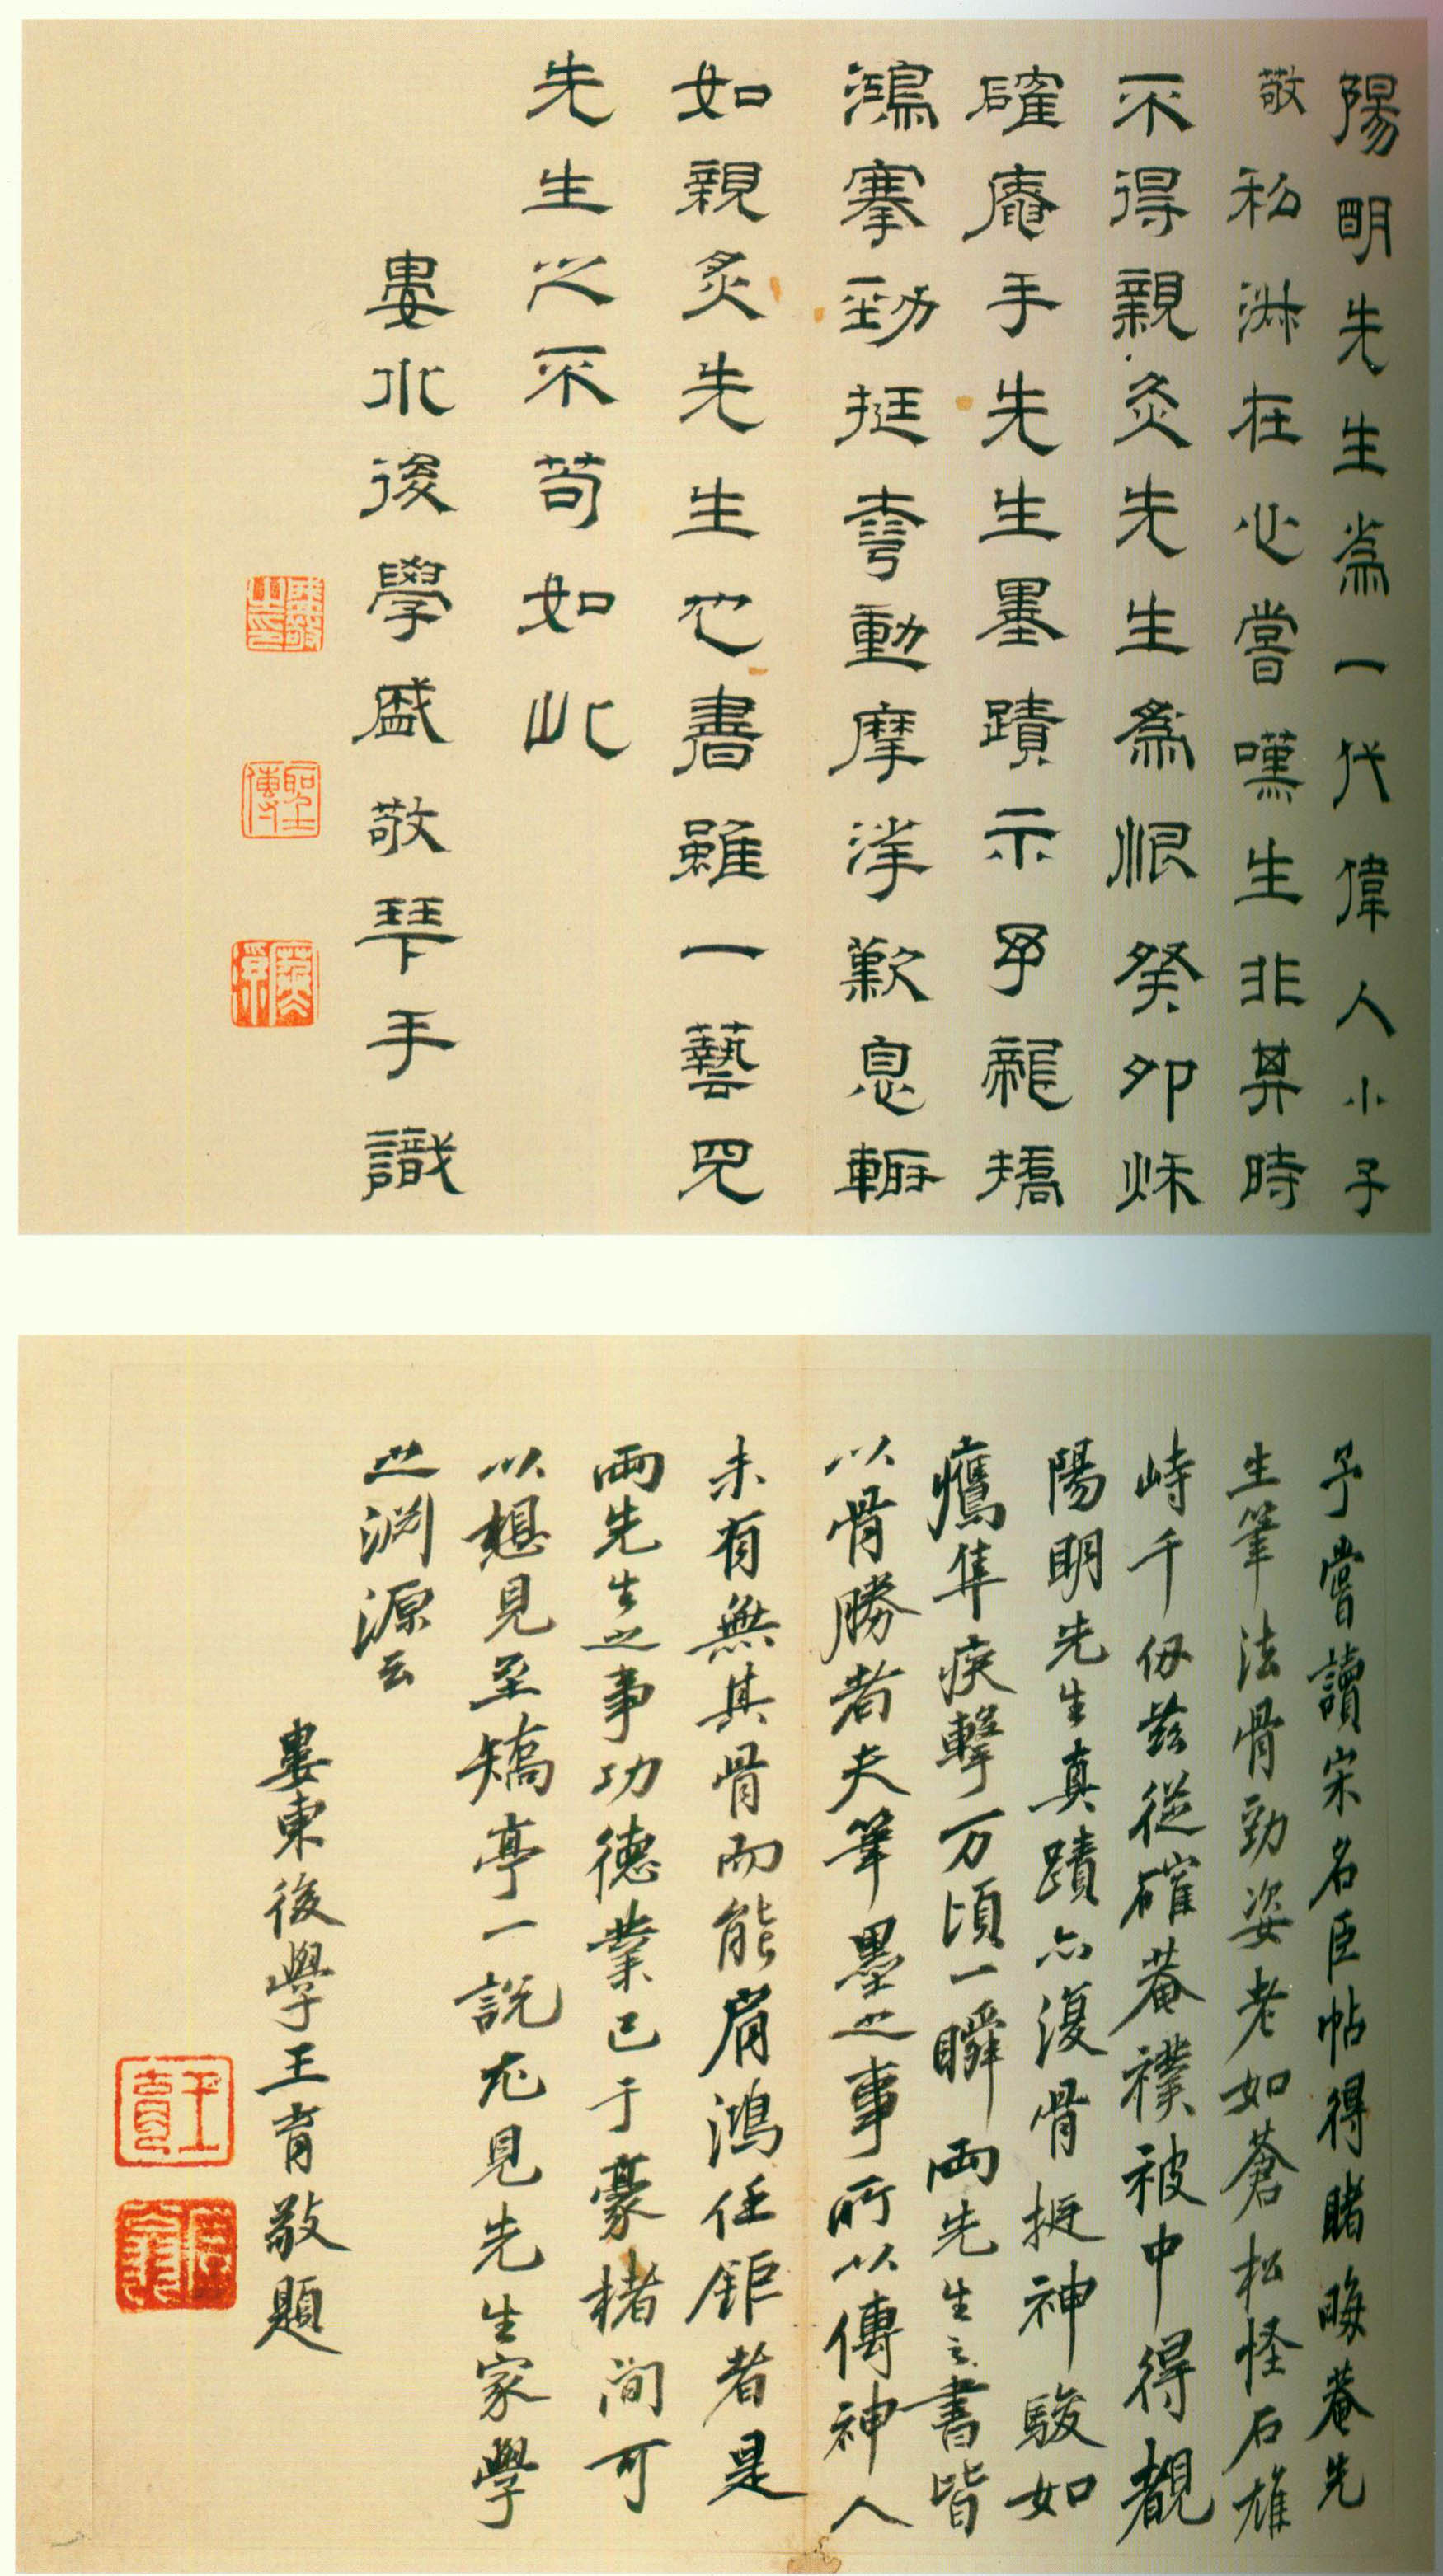 陽明先生爲一代偉人小子
敬私淑在心嘗嘆生非其時
不得親炙先生爲恨癸卯秋
確庵手先生墨蹟示予龍矯
鴻搴勁挺彎動摩挲歎息輙
如親炙先生也書雖一藝見
先生之不苟如此
婁水後學盛敬琴手識
盛敬之印
聖傳
予嘗讀宋名臣帖得睹晦菴先
生筆法骨勁姿老如蒼松怪石雄
峙千仞茲從確菴襆被中得覩
陽明先生真蹟亦復骨挺神駿如
鷹隼疾擊万頃一瞬兩先生之書皆
以骨勝者夫筆墨之事所以傳神人
未有無其骨而能肩鴻任鉅者是
兩先生之事功德業已于豪楮間可
以想見至矯亭一説尤見先生家學
之淵源云
婁東後學王育敬題
王育